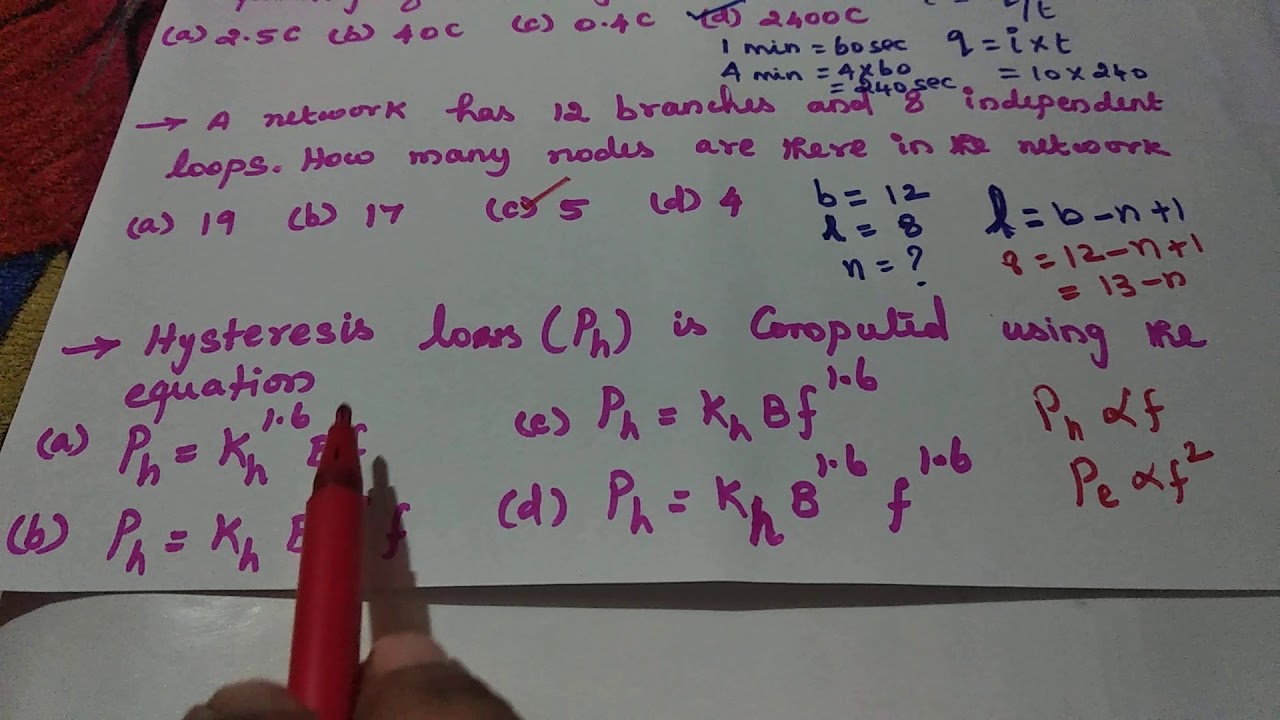 (a) 2.5C (b) 40C (c) 0.4C (d) 2400C
1 min = 60 sec q = i x t
4 min = 4x60 = 10 x 240
= 240 sec
→ A network has 12 branches and 8 independent
loops. How many nodes are there in the network
(a) 19 (b) 17 (c) 5 (d) 4
b = 12 l = b - n + 1
l = 8 8 = 12 - n + 1
n = ? = 13 - n
→ Hysteresis loss (Ph) is Computed using the
equation
(a) Ph = Kh^1.6 B f
(b) Ph = Kh B f
(c) Ph = Kh B f^1.6
(d) Ph = Kh B^1.6 f^1.6
Ph ∝ f
Pe ∝ f²